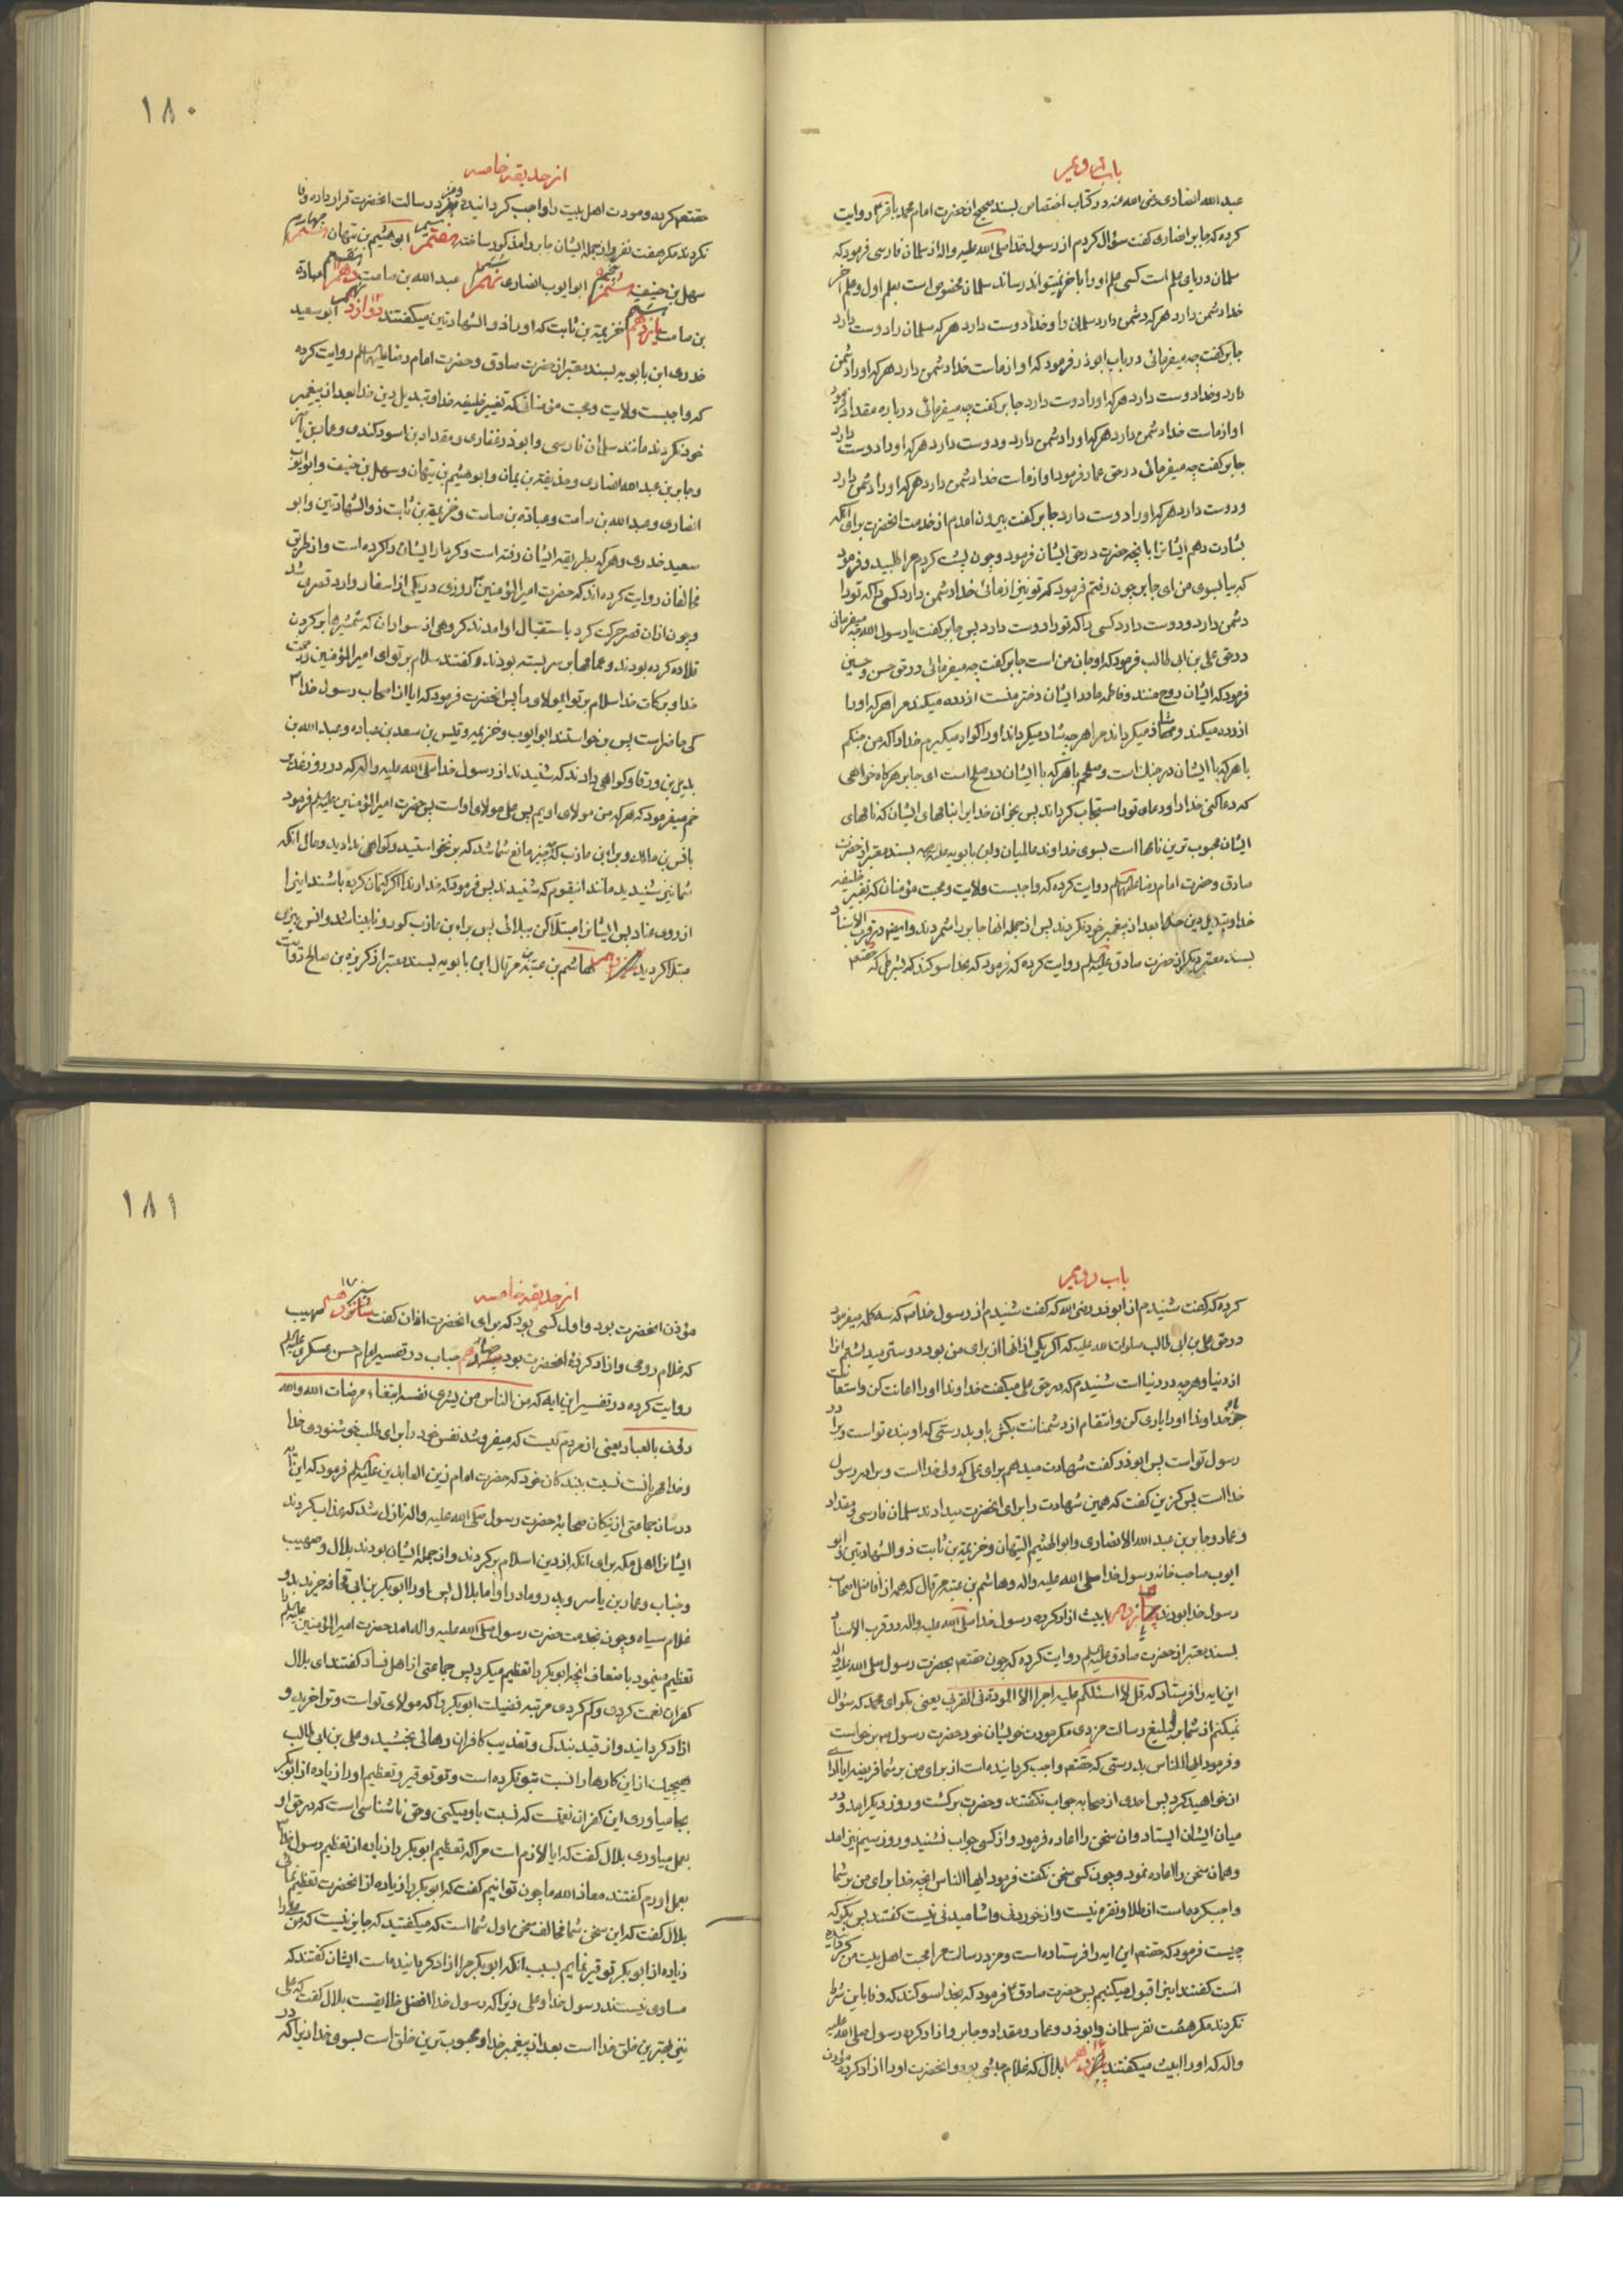 باب دویم
عبد الله انصاری رضی الله عنه و در کتاب اختصاص بسند صحیح از حضرت امام محمد باقر ع روایت
کرده که جابر انصاری گفت سؤال کردم از رسول خدا صلی الله علیه واله از سلمان فارسی فرمود که
سلمان دریای علم است کسی علم او را باخر نمیتواند رساند سلمان مخصوص است بعلم اول و علم اخر
خدا دشمن دارد هر که دشمن دارد سلمان را و خدا دوست دارد هر که سلمان را دوست دارد
جابر گفت چه میفرمائی در باب ابوذر فرمود که او از ماست خدا دشمن دارد هر که او را دشمن
دارد و خدا دوست دارد هر که او را دوست دارد جابر گفت چه میفرمائی در باره مقداد فرمود
او از ماست خدا دشمن دارد هر که او را دشمن دارد و دوست دارد هر که او را دوست دارد
جابر گفت چه میفرمائی در حق عمار فرمود او از ماست خدا دشمن دارد هر که او را دشمن دارد
و دوست دارد هر که او را دوست دارد جابر گفت بیرون امدم از خدمت انحضرت برای انکه
بشارت دهم ایشانرا بانچه حضرت در حق ایشان فرمود و چون پشت کردم مرا طلبید و فرمود
که بیا بسوی من ای جابر چون رفتم فرمود که تو نیز از مائی خدا دشمن دارد کسی را که تو را
دشمن دارد و دوست دارد کسی را که تو را دوست دارد پس جابر گفت یا رسول الله چه میفرمائی
در حق علی بن ابی طالب فرمود که او جان من است جابر گفت چه میفرمائی در حق حسن و حسین
فرمود که ایشان روح منند و فاطمه مادر ایشان دختر منست ازرده میکند مرا هر که او را
ازرده میکند و شاد میگرداند مرا هر چه شاد میگرداند او را گواه میگیرم خدا را که من جنگم
با هر که با ایشان در جنگ است و صلحم با هر که با ایشان در صلح است ای جابر هر گاه خواهی
که دعا کنی خدا را و دعای تو را مستجاب گرداند پس بخوان خدا را بنامهای ایشان که نامهای
ایشان محبوب ترین نامها است بسوی خداوند عالمیان و ابن بابویه علیه الرحمه بسند معتبر از حضرت
صادق و حضرت امام رضا علیهما السلم روایت کرده که واجبست ولایت و محبت مؤمنان که تغییر خلیفه
خدا و تبدیل دین خدا بعد از پیغمبر خود نکردند پس از جمله انها جابر را شمردند و ایضا در قرب الاسناد
بسند معتبر دیگر از حضرت صادق علیه السلم روایت کرده که فرمود که بخدا سوگند که شرطی که حقتعالی
از حدیقه خاصه
حقتعم کرده و مودت اهل بیت را واجب گردانیده و مزد رسالت انحضرت قرار داده وفا
نکردند مگر هفت نفر و از جمله ایشان جابر را مذکور ساخته هفتم ابو هیثم بن تیهان هشتم
سهل بن حنیف ششم ابو ایوب انصاری نهم عبد الله بن صامت دهم عبادة
بن صامت یازدهم خزیمة بن ثابت که او را ذو الشهادتین میگفتند دوازدهم ابو سعید
خدری ابن بابویه بسند معتبر از حضرت صادق و حضرت امام رضا علیهما السلم روایت کرده
که واجبست ولایت و محبت مؤمنانی که تغییر خلیفه خدا و تبدیل دین خدا بعد از پیغمبر
خود نکردند مانند سلمان فارسی و ابوذر غفاری و مقداد بن اسود کندی و عمار بن یاسر
و جابر بن عبد الله انصاری و حذیفة بن یمان و ابو هیثم بن تیهان و سهل بن حنیف و ابو ایوب
انصاری و عبد الله بن صامت و عباده بن صامت و خزیمة بن ثابت ذو الشهادتین و ابو
سعید خدری و هر که بطریقه ایشان رفته است و کردار ایشان را کرده است و از طریق
مخالفان روایت کرده اند که حضرت امیر المؤمنین روزی در یکی از اسفار وارد قصری شد
و چون ازان قصر حرکت کرد باستقبال او امدند گروهی از سواران که شمشیرها بر گردن
قلاده کرده بودند و عمامها بر سر بسته بودند و گفتند سلام بر تو ای امیر المؤمنین و رحمت
خدا و برکات خدا سلام بر تو ای مولای ما پس انحضرت فرمود که ایا از اصحاب رسول خدا ص
کی حاضر است پس برخواستند ابو ایوب و خزیمه و قیس بن سعد بن عباده و عبد الله بن
بدیل بن ورقا و گواهی دادند که شنیدند از رسول خدا صلی الله علیه واله که در روز غدیر
خم میفرمود که هر که من مولای اویم پس علی مولای او است پس حضرت امیر المؤمنین علیه السلم فرمود
بانس بن مالک و براء بن عازب که چه چیز مانع شما شد که برنخواستید و گواهی ندادید و حال انکه
شما نیز شنیدید مانند اینقوم که شنیدند پس فرمود که خداوندا اگر کتمان کرده باشند اینرا
از روی عناد پس ایشانرا مبتلا کن ببلائی پس براء بن عازب کور و نابینا شد و انس ببرص
مبتلا گردید سیزدهم هاشم بن عتبة مرقال ابن بابویه بسند معتبر از کریزه بن صالح روایت
۱۸۰
باب دویم
کرده که گفت شنیدم از ابوذر رضی الله که گفت شنیدم از رسول خدا ص که سه کلمه میفرمود
در حق علی بن ابی طالب صلوات الله علیه که اگر یکی از انها از برای من بود دوستر میداشتم از
از دنیا و هر چه در دنیا است شنیدم که در حق علی میگفت خداوندا او را اعانت کن و استعانت
جو خداوندا او را یاری کن و انتقام از دشمنانت بکش باو بدرستی که او بنده تو است و برادر
رسول تو است پس ابوذر گفت شهادت میدهم برای علی که ولی خدا است و برادر رسول
خدا است پس کریزه گفت که همین شهادت را برای انحضرت میدادند سلمان فارسی و مقداد
و عمار و جابر بن عبد الله الانصاری و ابو الهیثم التیهان و خزیمة بن ثابت ذو الشهادتین و ابو
ایوب صاحب خانه رسول خدا صلی الله علیه واله و هاشم بن عتبه مرقال که همه از افاضل اصحاب
رسول خدا بودند چهاردهم ابیث ازاد کرده رسول خدا صلی الله علیه واله در قرب الاسناد
بسند معتبر از حضرت صادق علیه السلم روایت کرده که چون حقتعم بحضرت رسول صلی الله علیه واله
این ایه را فرستاد که قل لا اسئلکم علیه اجرا الا المودة فی القربی یعنی بگو ای محمد که سؤال
نمیکنم از شما بر تبلیغ رسالت مزدی مگر مودت خویشان خود حضرت رسول ص برخواست
و فرمود ایها الناس بدرستی که حقتعم واجب گردانیده است از برای من بر شما فریضه ایا ادای
ان خواهید کرد پس احدی از صحابه جواب نگفتند و حضرت برگشت و روز دیگر امد و در
میان ایشان ایستاد و ان سخن را اعاده فرمود و از کسی جواب نشنید و روز سیم نیز امد
و همان سخن را اعاده نمود و چون کسی سخن نگفت فرمود ایها الناس انچه خدا برای من بر شما
واجب کرده است از طلا و نقره نیست و از خوردنی و اشامیدنی نیست گفتند پس بگو که
چیست فرمود که حقتعم این ایه را فرستاده است و مزد رسالت مرا محبت اهل بیت من گردانیده
است گفتند اینرا قبول میکنیم پس حضرت صادق ع فرمود که بخدا سوگند که وفا باین شرط
نکردند مگر هفت نفر سلمان و ابوذر و عمار و مقداد و جابر و ازاد کرده رسول صلی الله علیه
واله که او را ابیث میگفتند پانزدهم بلال که غلام حبشی بود و انحضرت او را ازاد کرده مؤذن
از حدیقه خاصه
مؤذن انحضرت بود و اول کسی بود که برای انحضرت اذان گفت شانزدهم صهیب
که غلام رومی و ازاد کردهٔ انحضرت بود خباب در تفسیر امام حسن عسکری علیه السلم
روایت کرده در تفسیر این ایه که من الناس من یشری نفسه ابتغاء مرضات الله والله
رؤف بالعباد یعنی از مردم کیست که میفروشد نفس خود را برای طلب خوشنودی خدا
و خدا مهربانست نسبت ببندگان خود که حضرت امام زین العابدین علیه السلم فرمود که این ایه
در شان جماعتی از نیکان صحابهٔ حضرت رسول صلی الله علیه واله نازل شد که عذاب کردند
ایشانرا اهل مکه برای انکه از دین اسلام برگردند و از جمله ایشان بودند بلال و صهیب
و خباب و عمار بن یاسر و پدر و مادر او اما بلال پس او را ابو بکر بن ابی قحافه خرید بدو
غلام سیاه و چون بخدمت حضرت رسول صلی الله علیه واله امد حضرت امیر المؤمنین علیه السلم را
تعظیم مینمود باضعاف انچه ابو بکر را تعظیم میکرد پس جماعتی از اهل فساد گفتند ای بلال
کفران نعمت کردی و کم کردی مرتبه فضیلت ابو بکر را که مولای تو است و ترا خرید و
ازاد گردانید و از قید بندگی و تعذیب کافران رهائی بخشید و علی بن ابی طالب
هیچیک از این کارها را نسبت بتو نکرده است و تو توقیر و تعظیم او را زیاده از ابو بکر
بجا میاوری این کفران نعمتست که نسبت باو میکنی و حق ناشناسی است که در حق او
بعمل میاوری بلال گفت که ایا لازم است مرا که تعظیم ابو بکر را زیاده از تعظیم رسول خدا ص
بعمل اورم گفتند معاذ الله ما چون توانیم گفت که ابو بکر را زیاده از انحضرت تعظیم نمائی
بلال گفت که این سخن شما مخالف سخن اول شما است که میگفتید که جایز نیست که من علی را
زیاده از ابو بکر توقیر نمایم بسبب انکه ابو بکر مرا ازاد گردانیده است ایشان گفتند که
مساوی نیستند رسول خدا و علی زیرا که رسول خدا افضل خلایقست بلال گفت که علی
نیز بهترین خلق خدا است بعد از پیغمبر خدا و محبوب ترین خلق است بسوی خدا زیرا که
۱۸۱